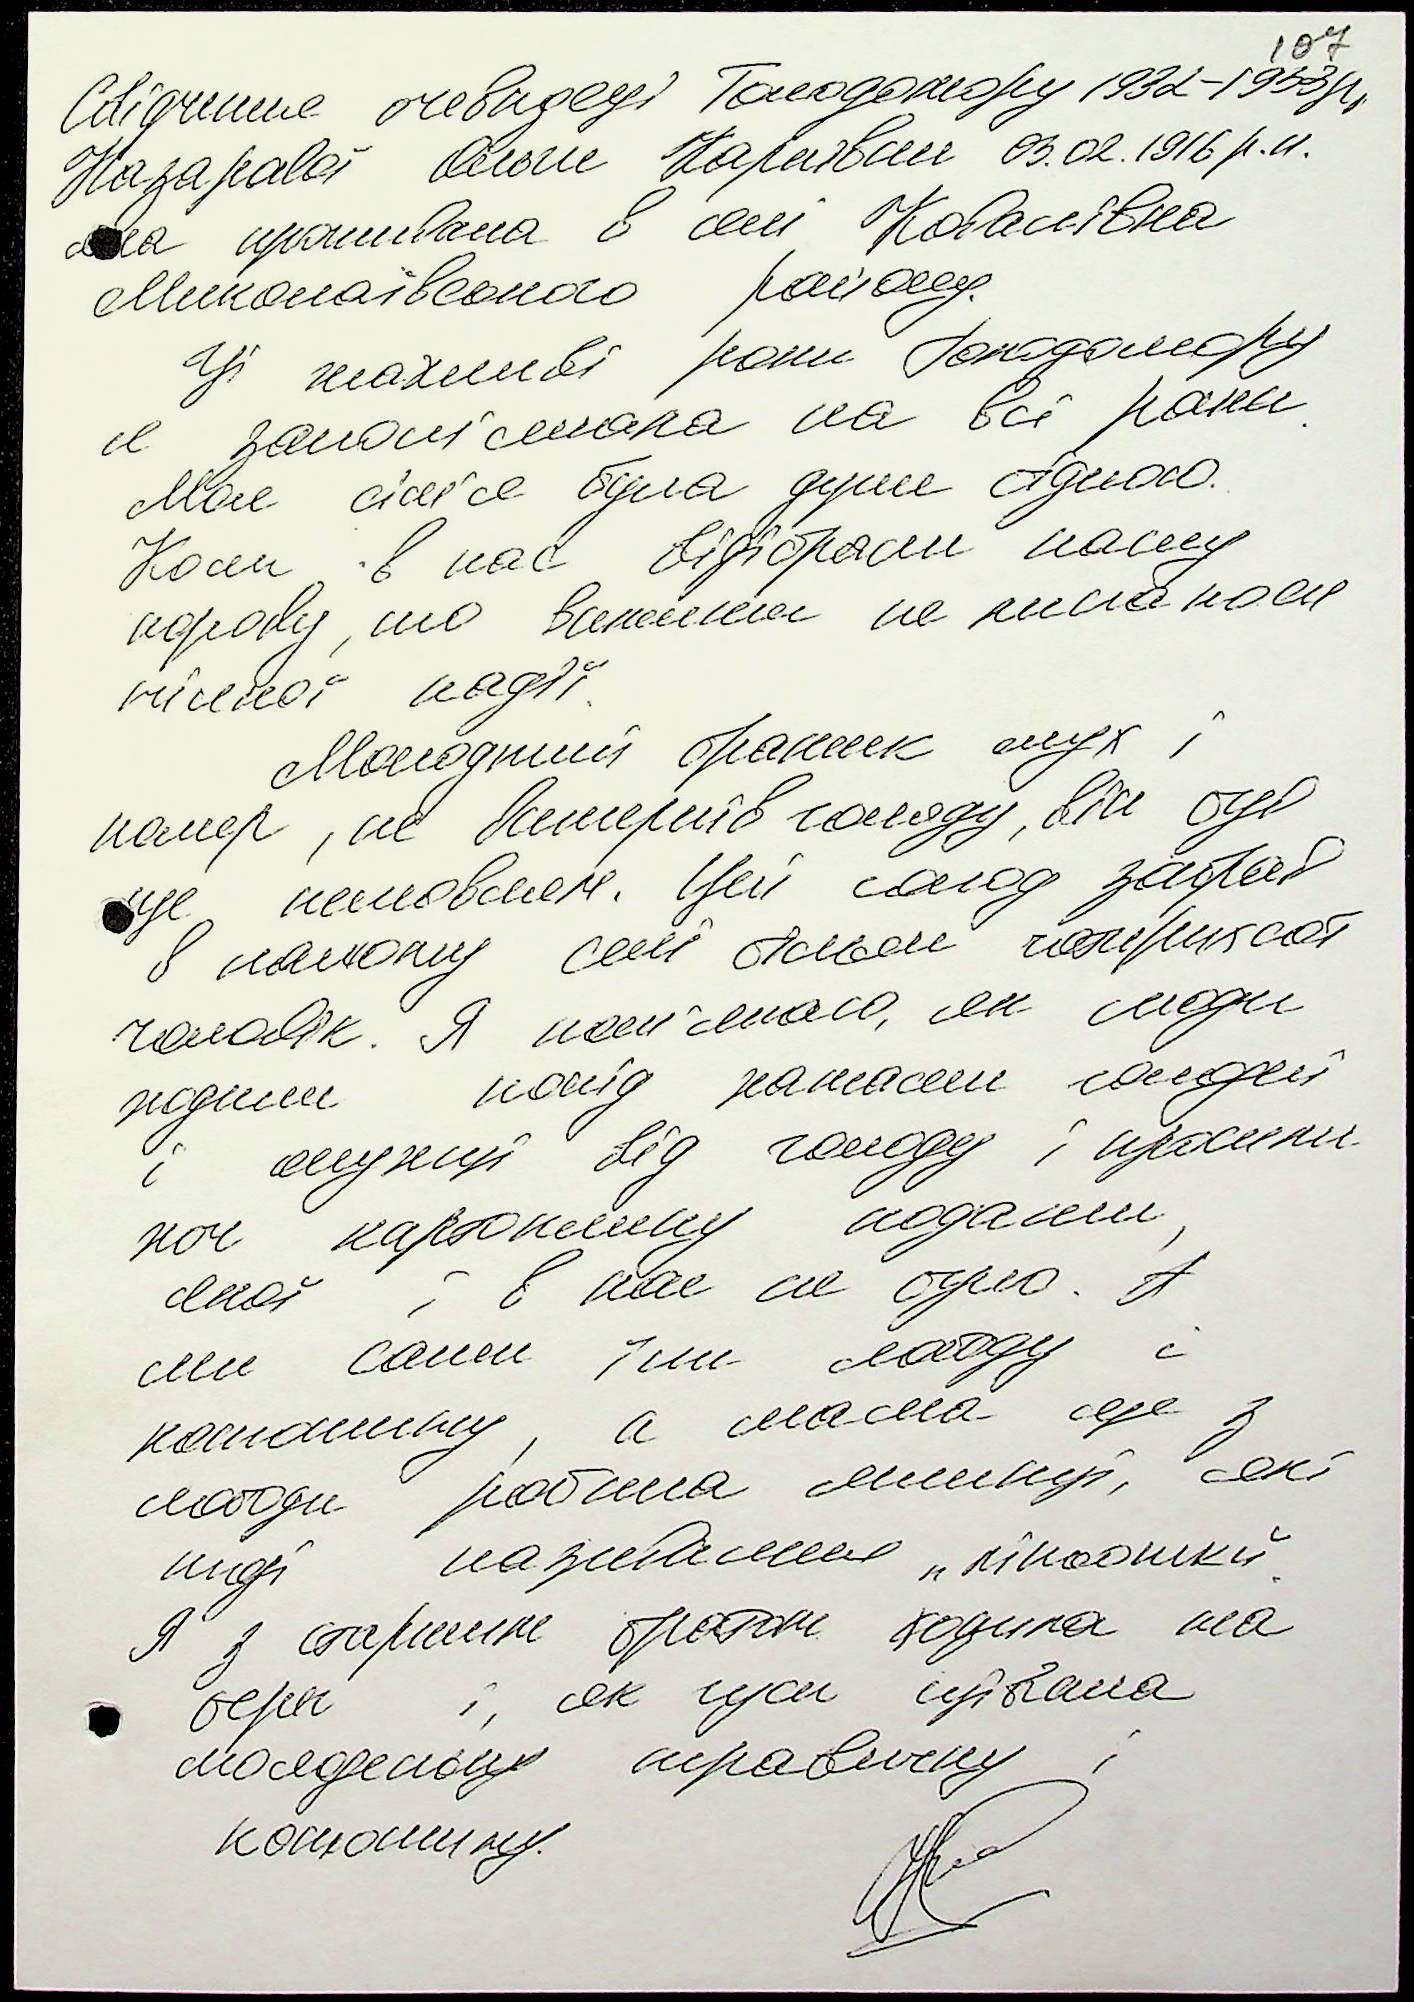 107
Свідчення очевидеці Голодомору 1932-1933рр.
Назарової Ольги Карпівни 03.02.1916 р.н.
яка проживала в селі Ковалівка
Миколаївського району.
Ці жахливі роки Голодомору
я запам'ятала на всі роки.
Моя сім'я була дуже бідною.
Коли в нас відібрали нашу
корову, то вижити не лишилося
ніякої надії.
Молодший братик опух і
помер, не витерпів голоду, він був
ще немовлям. Цей голод забрав
в нашому селі більш чотирихсот
чоловік. Я пам'ятаю, як люди
ходили попід хатами голодні
і опухші від голоду і просили
хоч картоплину подати,
якої і в нас не було. А
ми самі їли лободу і
конюшину, а мама ще з
лободи робила млинці, які
тоді називалися „ліпоники".
Я з старшим братом ходила на
берег і, як гуси щипала
молоденьку травичку і
конюшину.